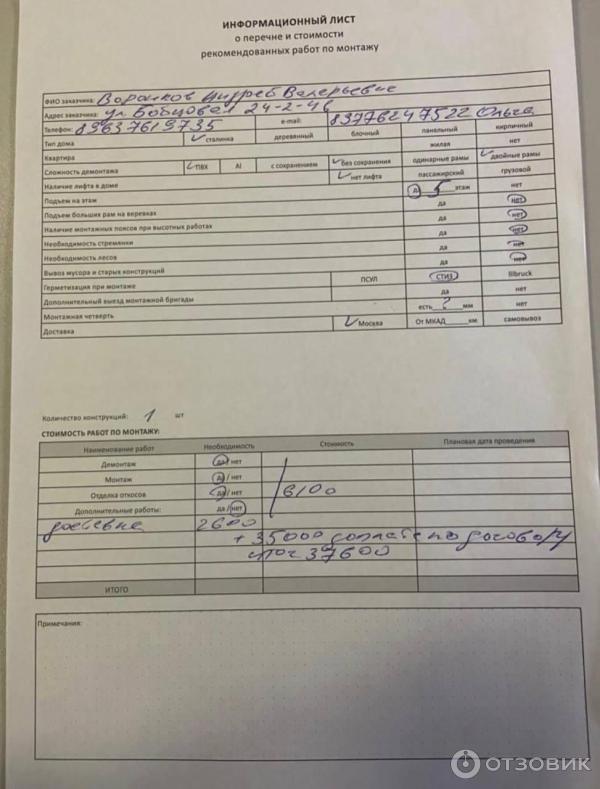 ИНФОРМАЦИОННЫЙ ЛИСТ
о перечне и стоимости
рекомендованных работ по монтажу
ФИО заказчика: Воронков Андрей Валерьевич
Адрес заказчика: ул 24-2-48
Телефон: 89637619735 e-mail: 89776247522 Ольга
Тип дома сталинка деревянный блочный панельный кирпичный
Квартира жилая нет
Сложность демонтажа ПВХ Al с сохранением без сохранения одинарные рамы двойные рамы
Наличие лифта в доме нет лифта пассажирский грузовой
Подъем на этаж да 5 этаж нет
Подъем больших рам на веревках да нет
Наличие монтажных поясов при высотных работах да нет
Необходимость стремянки да нет
Необходимость лесов да нет
Вывоз мусора и старых конструкций да нет
Герметизация при монтаже ПСУЛ СТИЗ Illbruck
Дополнительный выезд монтажной бригады да нет
Монтажная четверть есть ? мм нет
Доставка Москва От МКАД____км самовывоз
Количество конструкций: 1 шт
СТОИМОСТЬ РАБОТ ПО МОНТАЖУ:
Наименование работ Необходимость Стоимость Плановая дата проведения
Демонтаж да/нет
Монтаж да/нет
Отделка откосов да/нет 6100
Дополнительные работы: да/нет
2600
+ 35000 доплата по договору
37600
ИТОГО
Примечания:
ОТЗОВИК